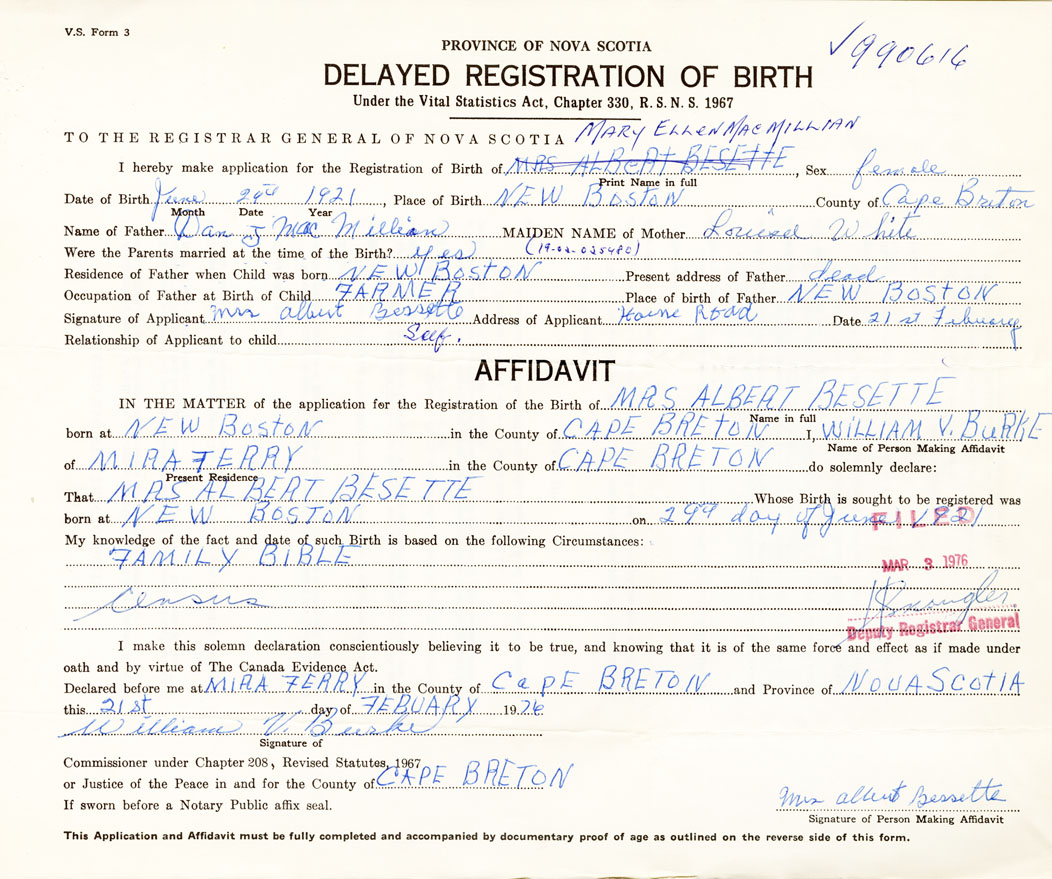 V.S. Form 3
PROVINCE OF NOVA SCOTIA
√990616
DELAYED REGISTRATION OF BIRTH
Under the Vital Statistics Act, Chapter 330, R. S. N. S. 1967
TO THE REGISTRAR GENERAL OF NOVA SCOTIA MARY ELLEN MACMILLIAN
I hereby make application for the Registration of Birth of MRS ALBERT BESETTE, Sex female
Print Name in full
Date of Birth June 29th 1921, Place of Birth NEW BOSTON County of Cape Briton
Month Date Year
Name of Father Dan J Mac Millian MAIDEN NAME of Mother Louisa White
Were the Parents married at the time of the Birth? yes (19-02-025480)
Residence of Father when Child was born NEW BOSTON Present address of Father dead
Occupation of Father at Birth of Child FARMER Place of birth of Father NEW BOSTON
Signature of Applicant Mrs albert Bessette Address of Applicant Road Date 21st February
Relationship of Applicant to child Self.
AFFIDAVIT
IN THE MATTER of the application for the Registration of the Birth of MRS ALBERT BESETTE
Name in full
born at NEW BOSTON in the County of CAPE BRETON I, WILLIAM V. BURKE
Name of Person Making Affidavit
of MIRA FERRY in the County of CAPE BRETON do solemnly declare:
Present Residence
That MRS ALBERT BESETTE Whose Birth is sought to be registered was
born at NEW BOSTON on 29th day of June 1921
FILED
My knowledge of the fact and date of such Birth is based on the following Circumstances:
FAMILY BIBLE
MAR 3 1976
Census
Deputy Registrar General
I make this solemn declaration conscientiously believing it to be true, and knowing that it is of the same force and effect as if made under
oath and by virtue of The Canada Evidence Act.
Declared before me at MIRA FERRY in the County of CaPE BRETON and Province of NOVA SCOTIA
this 21st day of FEBUARY 1976
William V. Burke
Signature of
Commissioner under Chapter 208, Revised Statutes, 1967
or Justice of the Peace in and for the County of CAPE BRETON
If sworn before a Notary Public affix seal.
Mrs albert Bessette
Signature of Person Making Affidavit
This Application and Affidavit must be fully completed and accompanied by documentary proof of age as outlined on the reverse side of this form.